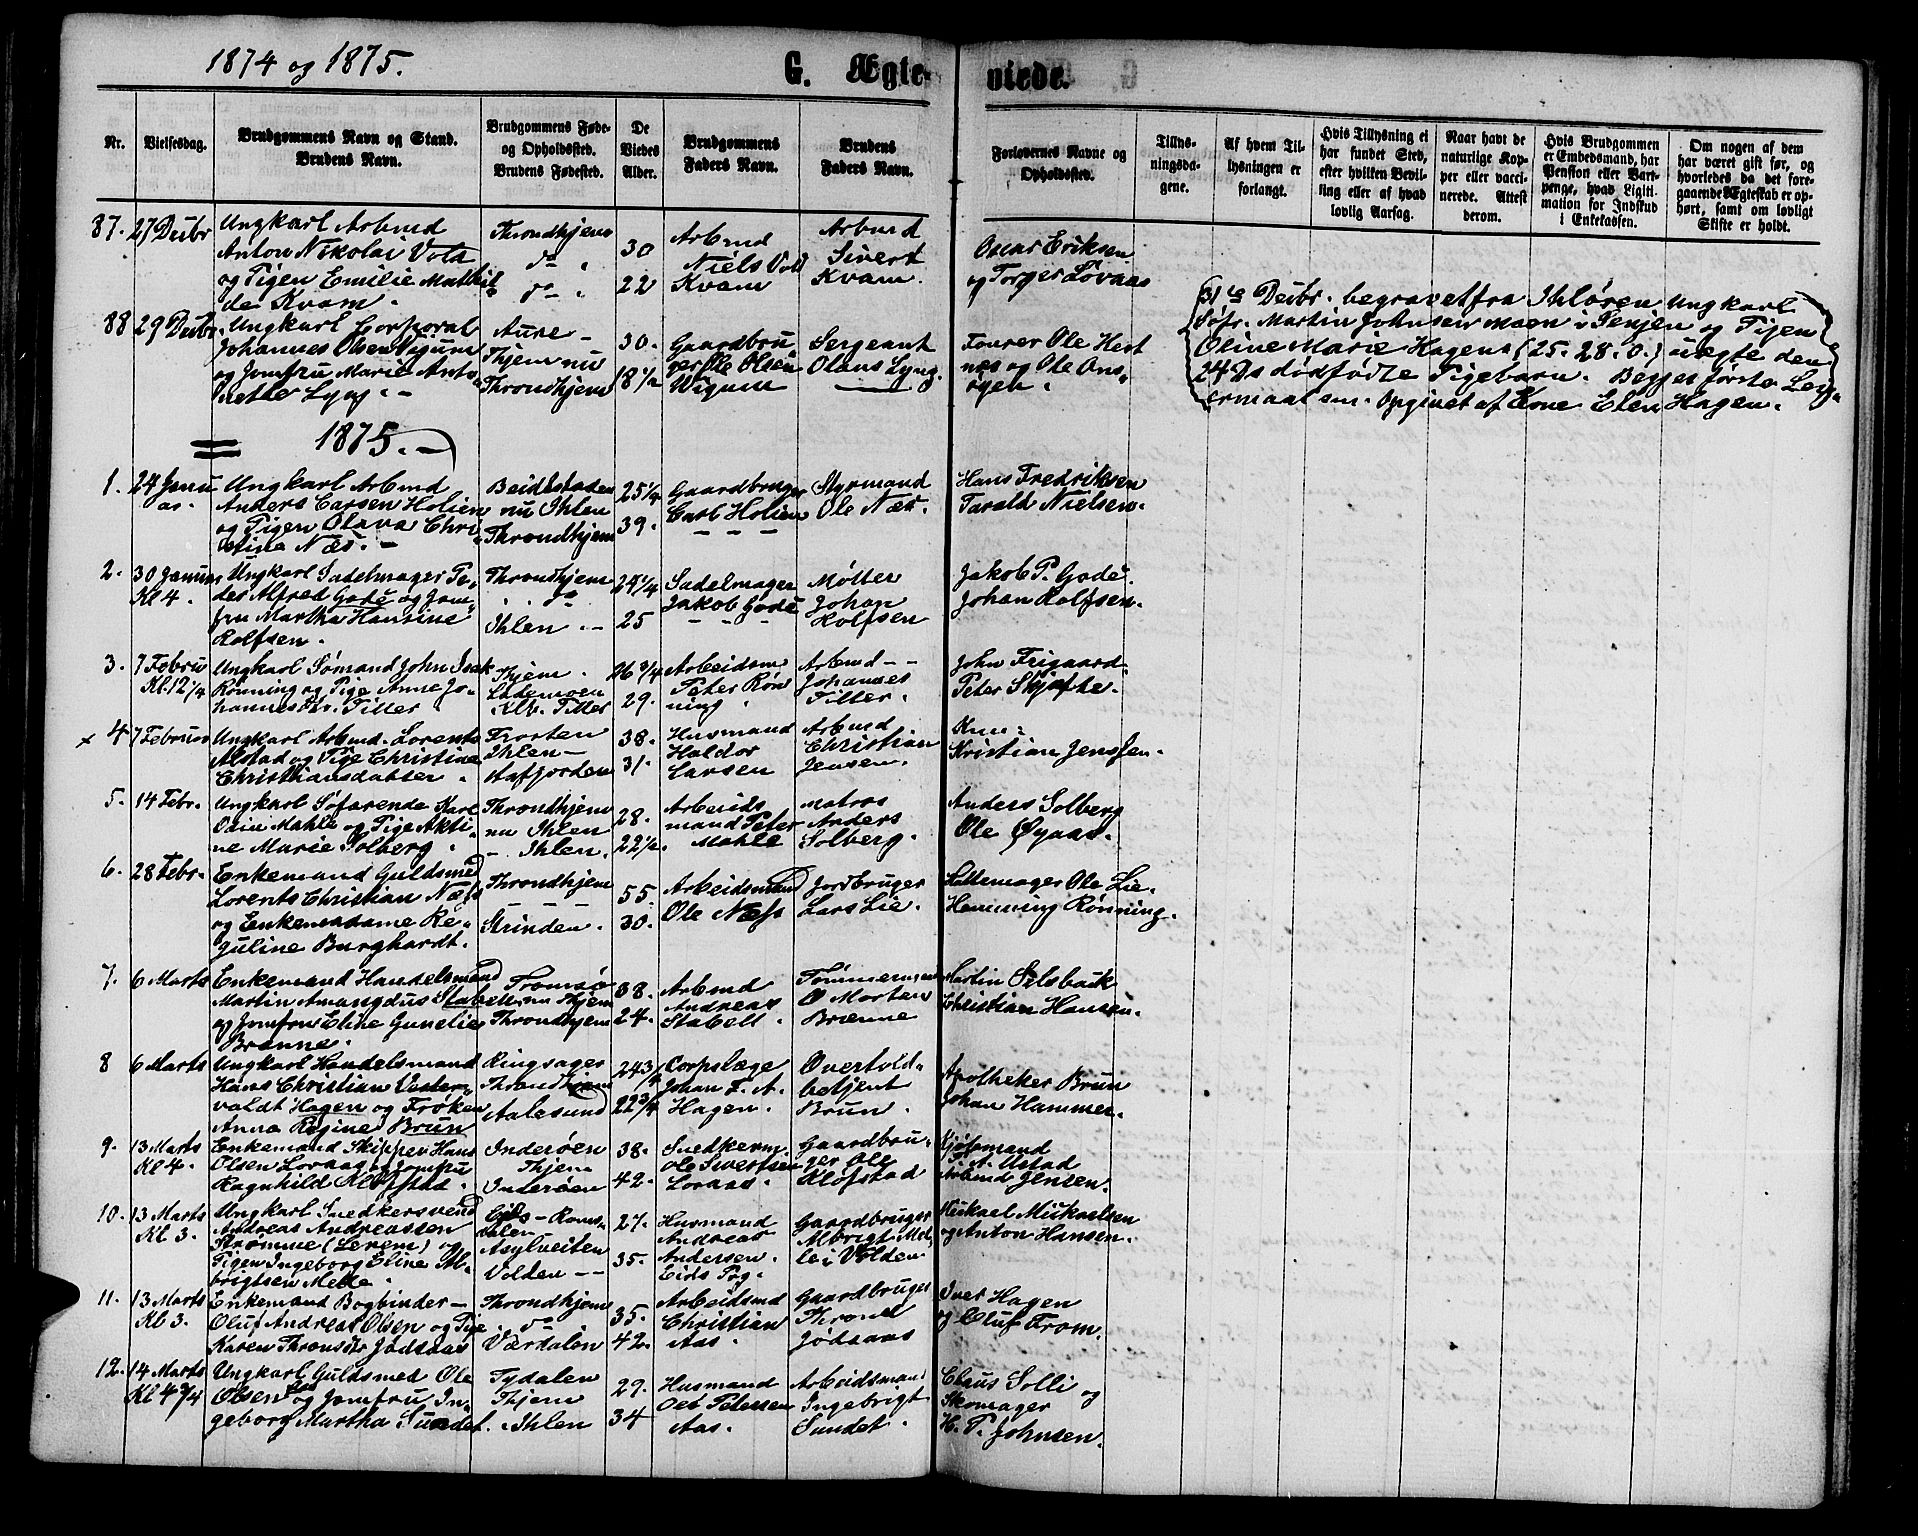 1874 og 1875.
G. Ægte- viede.
Nr.
Vielsesdag.
Brudgommens Navn og Stand.
Brudens Navn.
Brudgommens Føde-
og Opholdssted.
Brudens Fødested.
De
Viedes
Alder.
Brudgommens
Faders Navn.
Brudens
Faders Navn.
Forlovernes Navne og
Opholdssted.
Tillys-
ningsda-
gene.
Af hvem Til-
lysningen er
forlangt.
Hvis Tillysning ei
har fundet Sted,
efter hvilken Bevil-
ling eller af hvad
lovlig Aarsag.
Naar havt de
naturlige Kop-
per eller vacci-
nerede. Attest
derom.
Hvis Brudgommen
er Embedsmand, har
Pension eller Vart-
penge, hvad Ligiti-
mation for Indskud
i Enkekassen.
Om nogen af dem
har været gift før, og
hvorledes da det fore-
gaaende Ægteskab er op-
hørt, samt om lovligt
Skifte er holdt.
87. 27 Decbr Ungkarl Arbmd
Anton Nikolai Vold
og Pigen Emilie Mathil
de Kvam.
Throndhjem
do
do
30
22
Arbmd
Niels Vold
Kvam
Arbmd
Sivert
Kvam.
Oscar Eriksen
og Torger Løvaas
88 29 Decbr. Ungkarl Corporal
Johannes Olsen Vigum
og Jomfru Marie Anto
nette Lyng. -
Aure -
Thjem nu
Throndhjem
30.
18 1/2
Gaardbru
ger Ole Olsen
Wigum
Sergeant
Olaus Lyng.
Fourer Ole Hest
nes og Ole Ons
øyen.
31te Decbr. begravet fra Ihløren Ungkarl
Søfr. Martin Johnsen Moen i Penjen og Pigen
Oline Marie Hagens (25. 28. 0.) uægte den
24 Ds dødfødte Pigebarn. Begges første Lei
ermaal em. Opgivet af Kone Elen Hagen.
1875. -
1. 24 Janu
ar. Ungkarl Arbmd
Anders Carsen Holien
og Pigen Olava Chri
stine Næs. -
Beidstaden
nu Ihlen
Throndhjem
25 1/4
39.
Gaardbruger
Carl Holien
Styrmand
Ole Næs.
Hans Fredriksen
Tarald Nielsen.
2. 30 Januar
Kl 4. Ungkarl Sadelmager Pe
der Alfred Gode og Jom
fru Martha Hansine
Rolfsen.
Throndhjem
do
Ihlen. -
24 1/4
25
Sadelmager
Jakob Gode
Møller
Johan
Rolfsen
Jakob P. Gode.
Johan Rolfsen.
3. 7 Febru
Kl. 12 1/4 Ungkarl Sømand John Isak
Rønning og Pige Anne Jo-
hannesdtr. Tiller.
Thjem.
Lademoen
Klb. Tiller
26 3/4
29.
Arbeidsm
Peter Røn
ning.
Arbmd - -
Johannes
Tiller.
John Frigaard
Peter Skjefte.
x 4 7 Februar Ungkarl Arbmd. Lorents
Alstad og Pige Christine
Christiansdatter.
Frosten
Ihlen -
Stafjorden
38.
31.
Husmand
Haldor
Larsen
Arbmd
Christian
Jensen.
Kristian Jenssen.
5. 14 Febr. Ungkarl Søfarende Karl
Odin Mahle og Pige Akti
ne Marie Solberg.
Throndhjem
nu Ihlen
- Ihlen.
28.
22 1/2.
Arbeids
mand Peter
Mahle
Matros
Anders
Solberg.
Anders Solberg
Ole Øyaas.
6. 28 Febr. Enkemand Guldsmed
Lorents Christian Næss
og Enkemadame Re-
guline Burghardt.
Throndhjem
Strinden.
55.
30.
Arbeidsmand
Ole Næss
Jordbruger
Lars Lie.
Hattemager Ole Lie.
Henning Rønning.
7. 6 Marts Enkemand Handelsmand
Martin Amandus Stabell
og Jomfru Eline Gunelie
Brænne.
Tromsø
nu Thjem
Throndhjem
38.
24.
Arbmd
Andreas
Stabell.
Tømmermand
O Morten
Brænne
Martin Selsback
Christian Hansen.
8 6 Marts Ungkarl Handelsmand
Hans Christian Vester
valdt Hagen og Frøken
Anna Regine Brun
Ringsager
Throndhjem
Aalesund
24 3/4
22 3/4
Corpslæge
Johan F. A.
Hagen.
Overtold-
betjent
Brun.
Apotheker Brun
Johan Hammer.
9. 13 Marts
Kl 4. Enkemand Skipper Hans
Olsen Loraas og Jomfru
Ragnhild Kløfstad.
Inderøen
Thjem
Inderøen
38.
42.
Snedkerm.
Ole Sivertsen
Loraas.
Gaardbru-
ger Ole
Kløfstad
Kjøbmand
A. Ustad
Arbmd Jensen.
10. 13 Marts
Kl 3. Ungkarl Snedkersvend
Andreas Andreassen
Strømme (Lerem) og
Pigen Ingeborg Eline Al-
brigtsen Melle.
Eids - Roms-
dalen
Asylveiten
Volden - -
27.
35.
Husmand
Andreas
Andersen.
Eids Pog.
Gaardbruger
Albrigt Mel-
le i Volden.
Mickael Mickaelsen
og Anton Hansen.
11. 13 Marts
Kl 3. Enkemand Bogbinder -
Oluf Andreas Olsen og Pige
Karen Thronsdtr Jødsaas
Throndhjem
do
Værdalen
35.
42.
Arbeidsmd
Christian
Aas.
Gaardbruger
Thrond
Jødsaas
Iver Hagen
og Oluf From.
12. 14 Marts
Kl 4 3/4 Ungkarl Guldsmed Ole
Olsen Aas og Jomfru In-
geborg Martha Sundet.
Tydalen
Thjem
. Ihlen
29.
34
Husmand
Ole Petersen
Aas.
Arbeidsmand
Ingebrigt
Sundet.
Claus Solli og
Skomager
H. P. Johnsen.